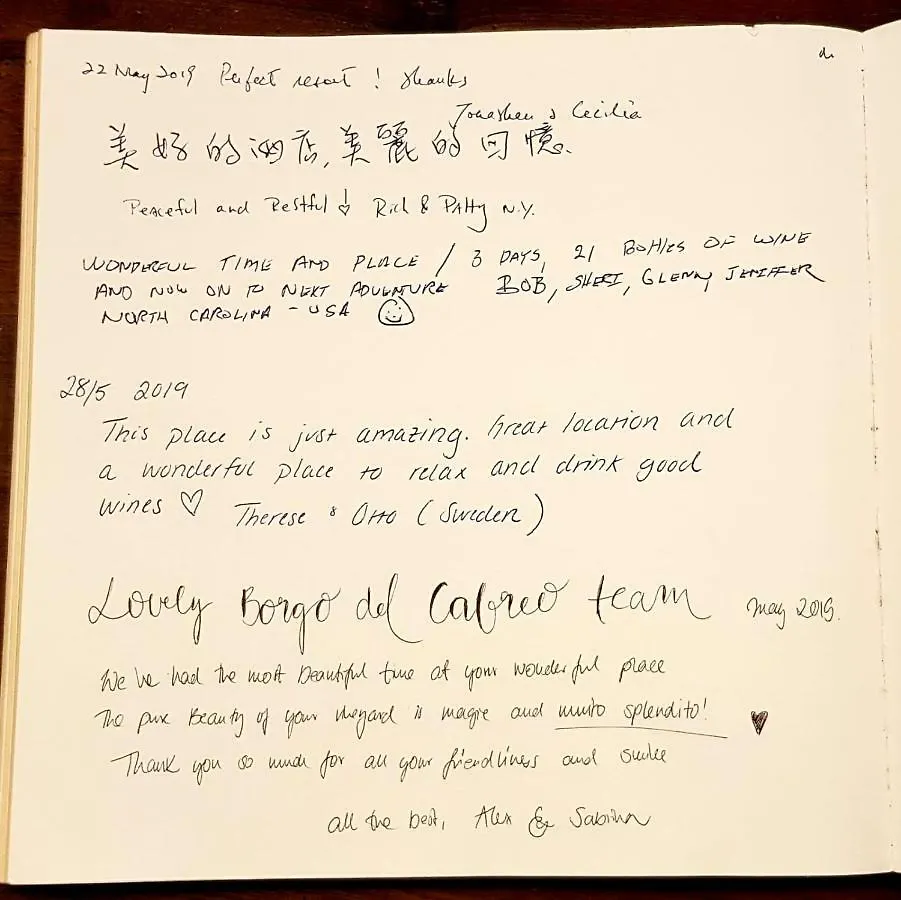 22 May 2019 Perfect resort ! Thanks
Jonathan & Cecilia
美好的酒店,美麗的回憶.
Peaceful and Restful Rich & Patty N.Y.
WONDERFUL TIME AND PLACE / 3 DAYS, 21 BOttles OF WINE
AND NOW ON TO NEXT ADVENTURE BOB, SHERI, GLENN, JENIFFER
NORTH CAROLINA - USA
28/5 2019
This place is just amazing. Great location and
a wonderful place to relax and drink good
wines ♡ Therese & Otto (Sweden)
Lovely Borgo del Cabreo team may 2019.
We've had the most beautiful time at your wonderful place
The pure Beauty of your vineyard is magic and muito splendito! ♥
Thank you so much for all your friendliness and smile
all the best, Alex & Sabina